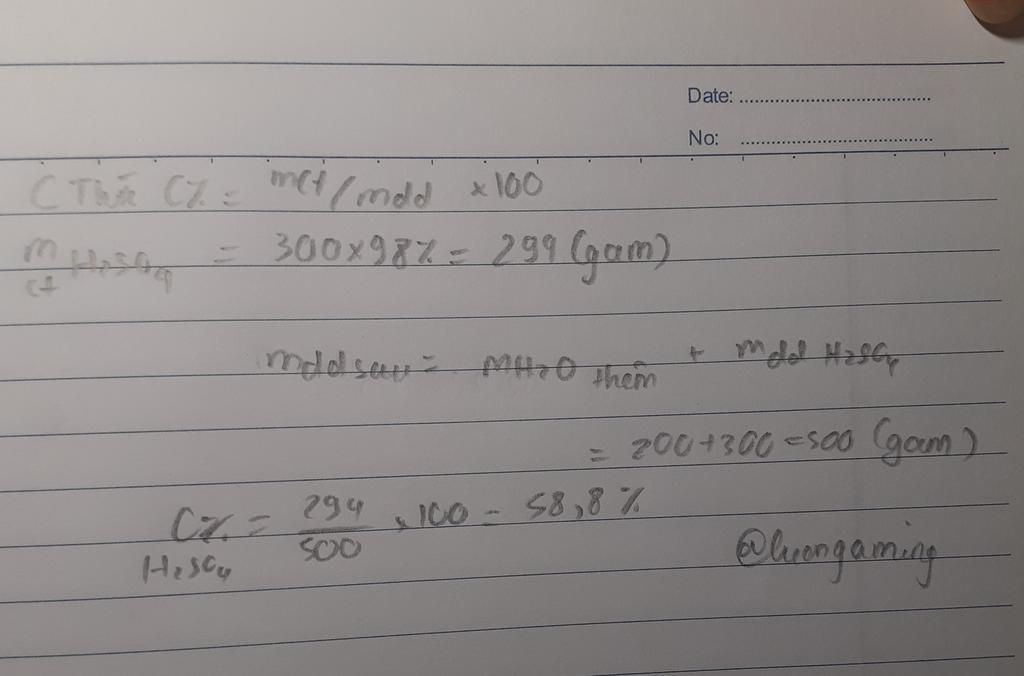 Date: ....................................
No: ....................................
C Thức C% = mct/mdd x100
m ct H2SO4 = 300x98% = 294 (gam)
mdd sau = mH2O thêm + mdd H2SO4
= 200+300=500 (gam)
C% H2SO4 = 294/500 x 100 = 58,8 %